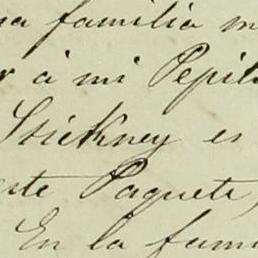 na familia m
r à mi Pepit
Stickney es
este Paquete,
En la fami